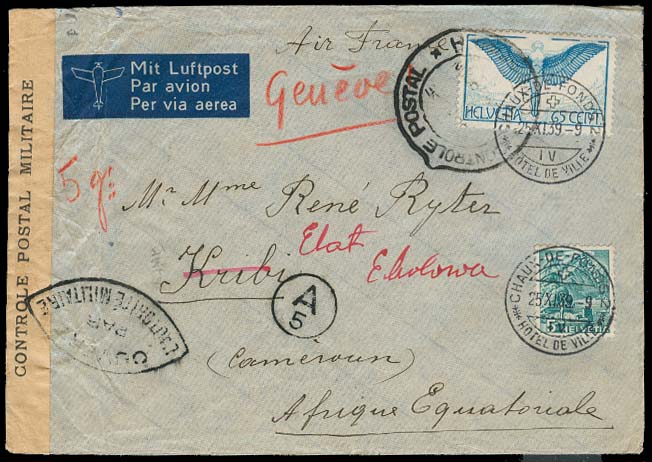 Air France
Mit Luftpost
Par avion
Per via aerea
Genève
HELVETIA 65 CENT
CHAUX-DE-FONDS 2
25.XI.39-9
IV
HOTEL DE VILLE
CONTROLE POSTAL
CONTROLE POSTAL MILITAIRE
5 gr.
Mr. Mme René Ryter
Kribi
Elat
Ebolowa
A
5
L'AUTORITE MILITAIRE
PAR
CHAUX-DE-FONDS 2
25.XI.39-9
HOTEL DE VILLE
HELVETIA
(Cameroun)
Afrique Equatoriale